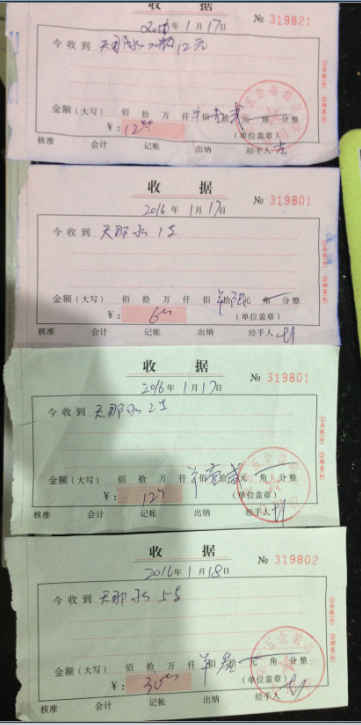 收据
2016年1月17日
№ 319821
今收到 天那水 12元
金额（大写） 佰 拾 万 仟 佰 拾 元 角 分整
¥： 12.00
（单位盖章）
核准 会计 记帐 出纳 经手人
收据
2016年1月17日
№ 319801
今收到 天那水1支
金额（大写） 佰 拾 万 仟 佰 拾陆元 角 分整
¥： 6.00
（单位盖章）
核准 会计 记帐 出纳 经手人
收据
2016年1月17日
№ 319801
今收到 天那水2支
金额（大写） 佰 拾 万 仟 佰壹拾贰元 角 分整
¥： 12.00
（单位盖章）
核准 会计 记帐 出纳 经手人
收据
2016年1月18日
№ 319802
今收到 天那水5支
金额（大写） 佰 拾 万 仟 佰 元 角 分整
¥： 30.00
（单位盖章）
核准 会计 记帐 出纳 经手人